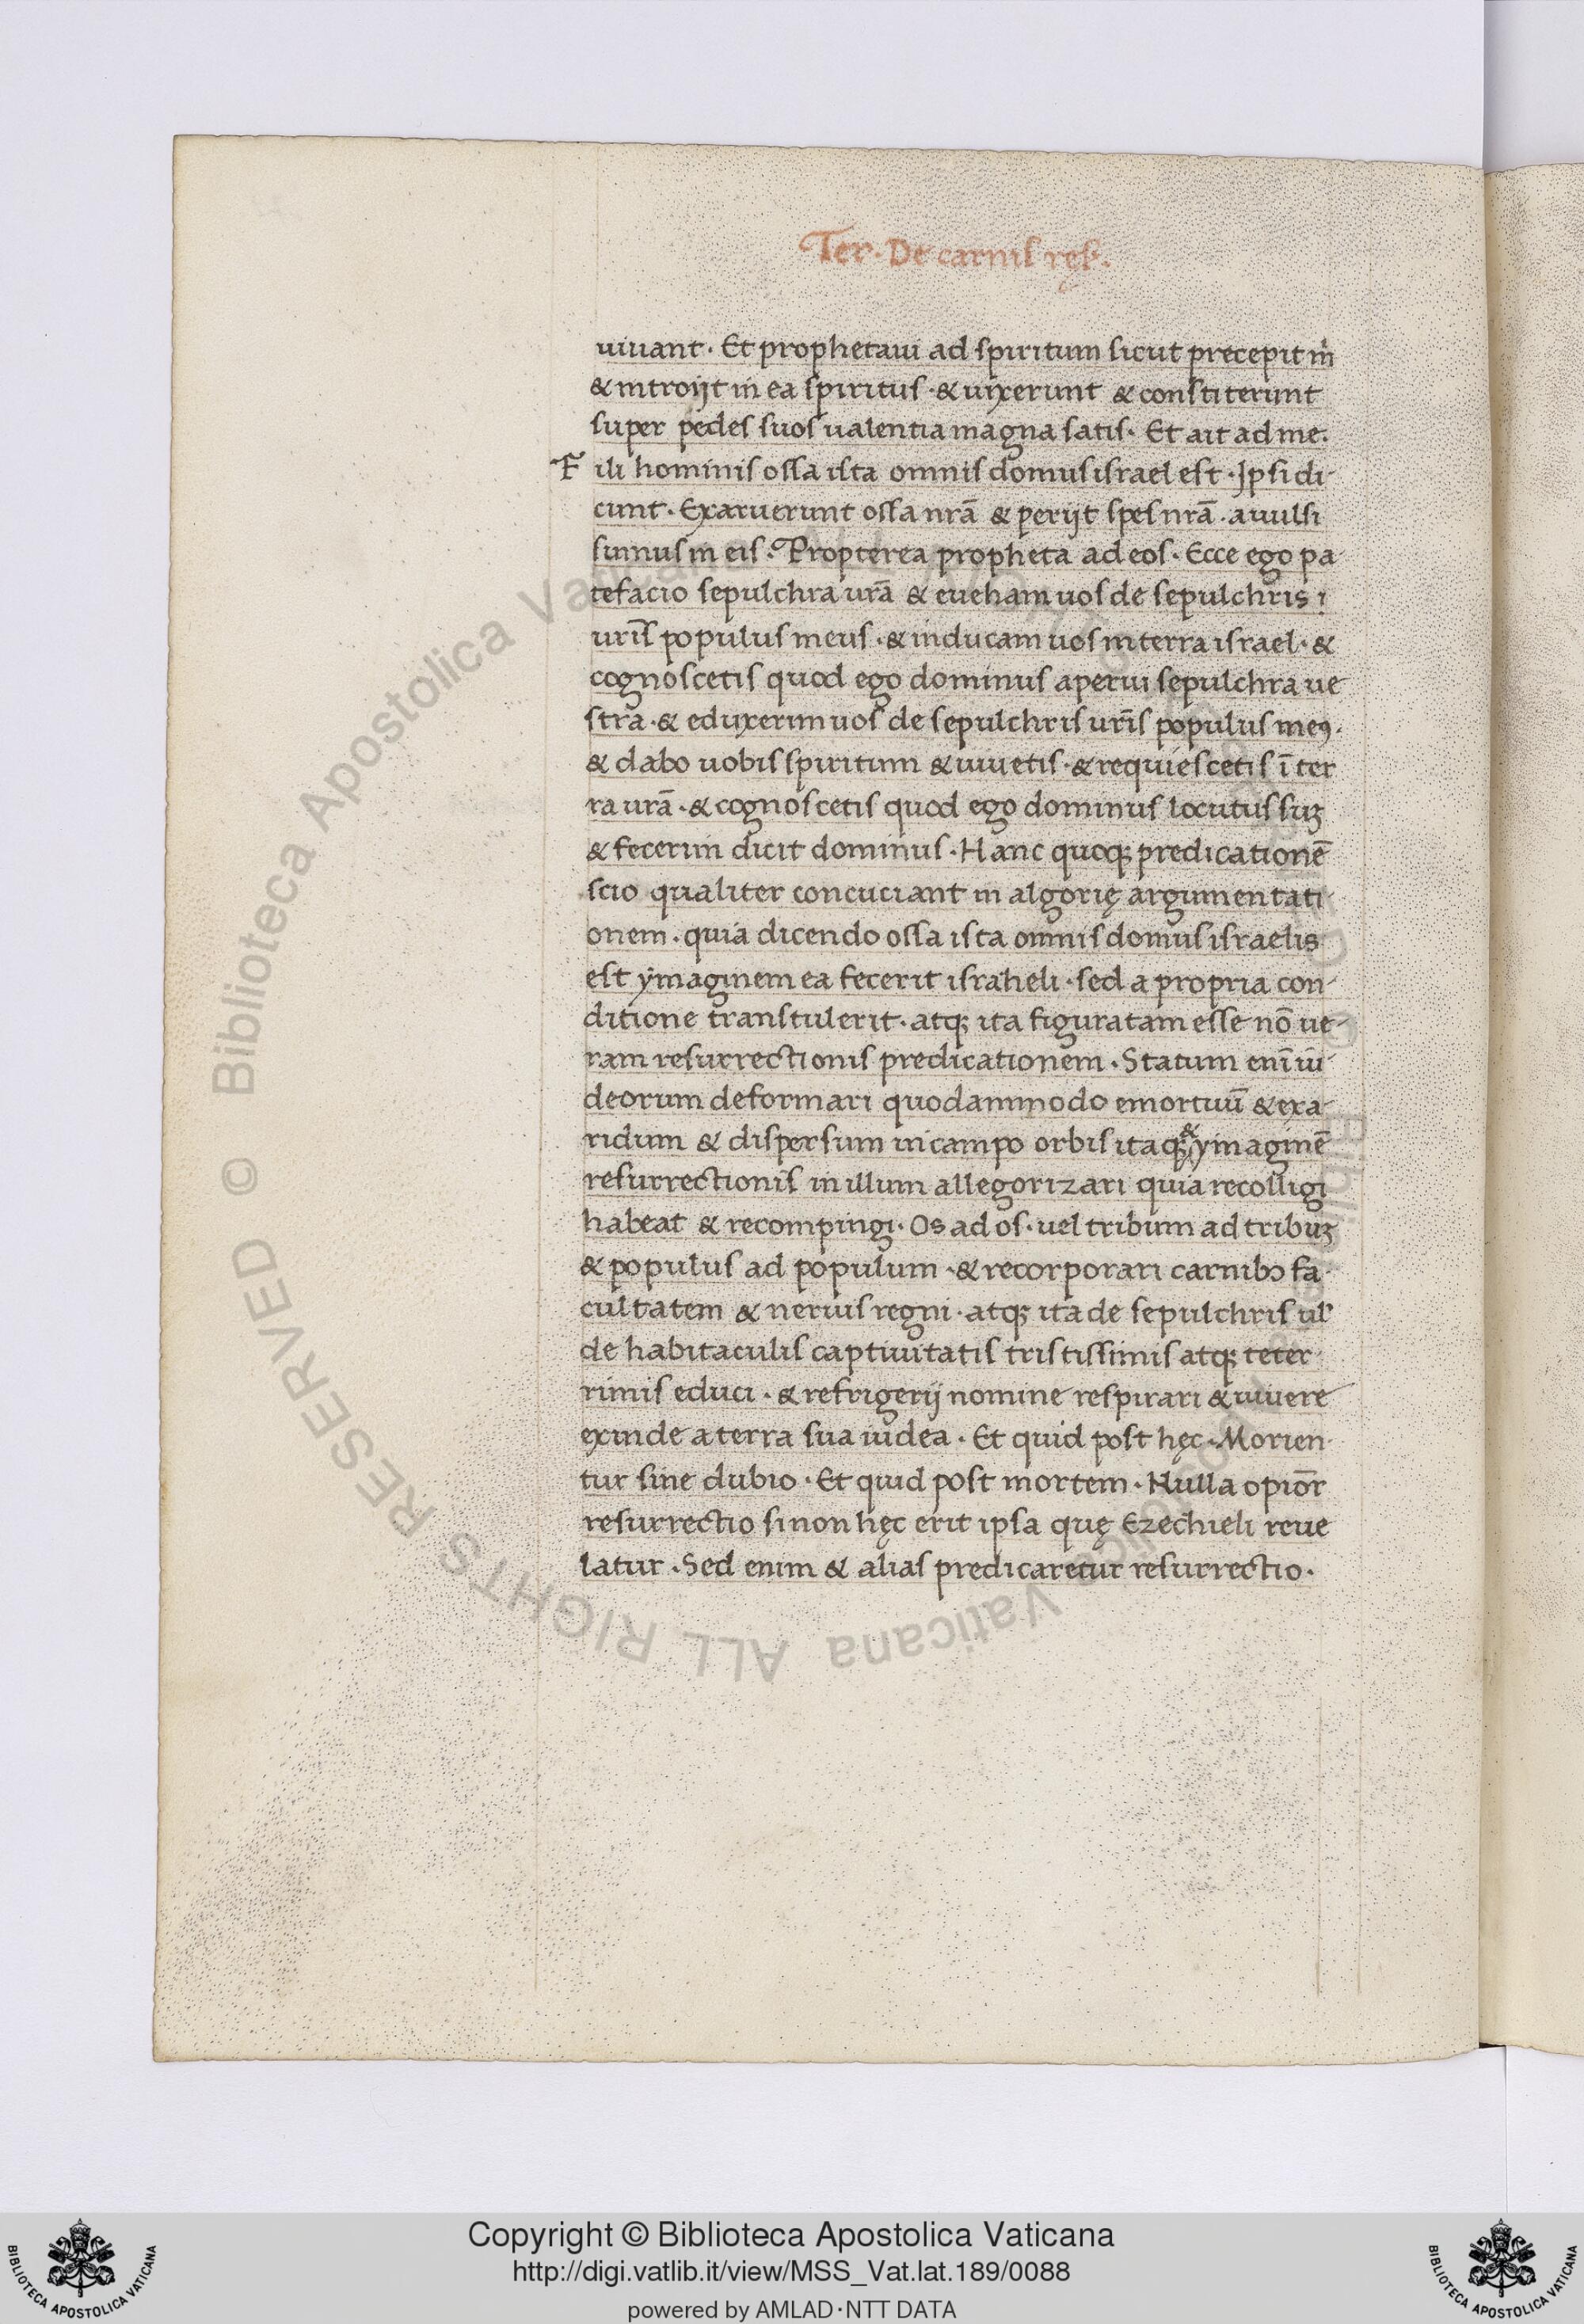 Ter. De carnis ręs.
uiuant. Et prophetaui ad spiritum sicut precepit m̊
& introijt in ea spiritus. & uixerunt & constiterunt
super pedes suos ualentia magna satis. Et ait ad me.
Fili hominis ossa ista omnis domus israel est. Ipsi di-
cunt. Exaruerunt ossa nrā & perijt spes nrā. auulsi
sumus in eis. Propterea propheta ad eos. Ecce ego pa-
tefacio sepulchra urā & eueham uos de sepulchris i
urīs populus meus. & inducam uos in terra israel. &
cognoscetis quod ego dominus aperui sepulchra ue
stra. & eduxerim uos de sepulchris urīs populus meꝯ.
& dabo uobis spiritum & uiuetis. & requiescetis ī ter
ra urā. & cognoscetis quod ego dominus locutus suꝫ
& fecerim dicit dominus. Hanc quoqꝫ predicationē
scio qualiter concuciant in algorię argumentati
onem. quia dicendo ossa ista omnis domus israelis
est ymaginem ea fecerit israheli. sed a propria con-
ditione transtulerit. atqꝫ ita figuratam esse nō ue-
ram resurrectionis predicationem. Statum enī iu-
deorum deformari quodammodo emortuū & exa-
ridum & dispersum in campo orbis itaqꝫ & ymaginē
resurrectionis in illum allegorizari quia recolligi
habeat & recompingi. Os ad os. uel tribum ad tribuꝫ
& populus ad populum. & recorporari carnibꝫ fa-
cultatem & neruis regni. atqꝫ ita de sepulchris ul'
de habitaculis captiuitatis tristissimis atqꝫ teter-
rimis educi. & refrigerij nomine respirari & uiuere
exinde a terra sua iudea. Et quid post hęc. Morien-
tur sine dubio. Et quid post mortem. Nulla opiōr
resurrectio si non hęc erit ipsa quę Ezechieli reue
latur. Sed enim & alias predicaretur resurrectio.
© Biblioteca Apostolica Vaticana ALL RIGHTS RESERVED
Copyright © Biblioteca Apostolica Vaticana
http://digi.vatlib.it/view/MSS_Vat.lat.189/0088
powered by AMLAD·NTT DATA
BIBLIOTECA APOSTOLICA VATICANA
BIBLIOTECA APOSTOLICA VATICANA